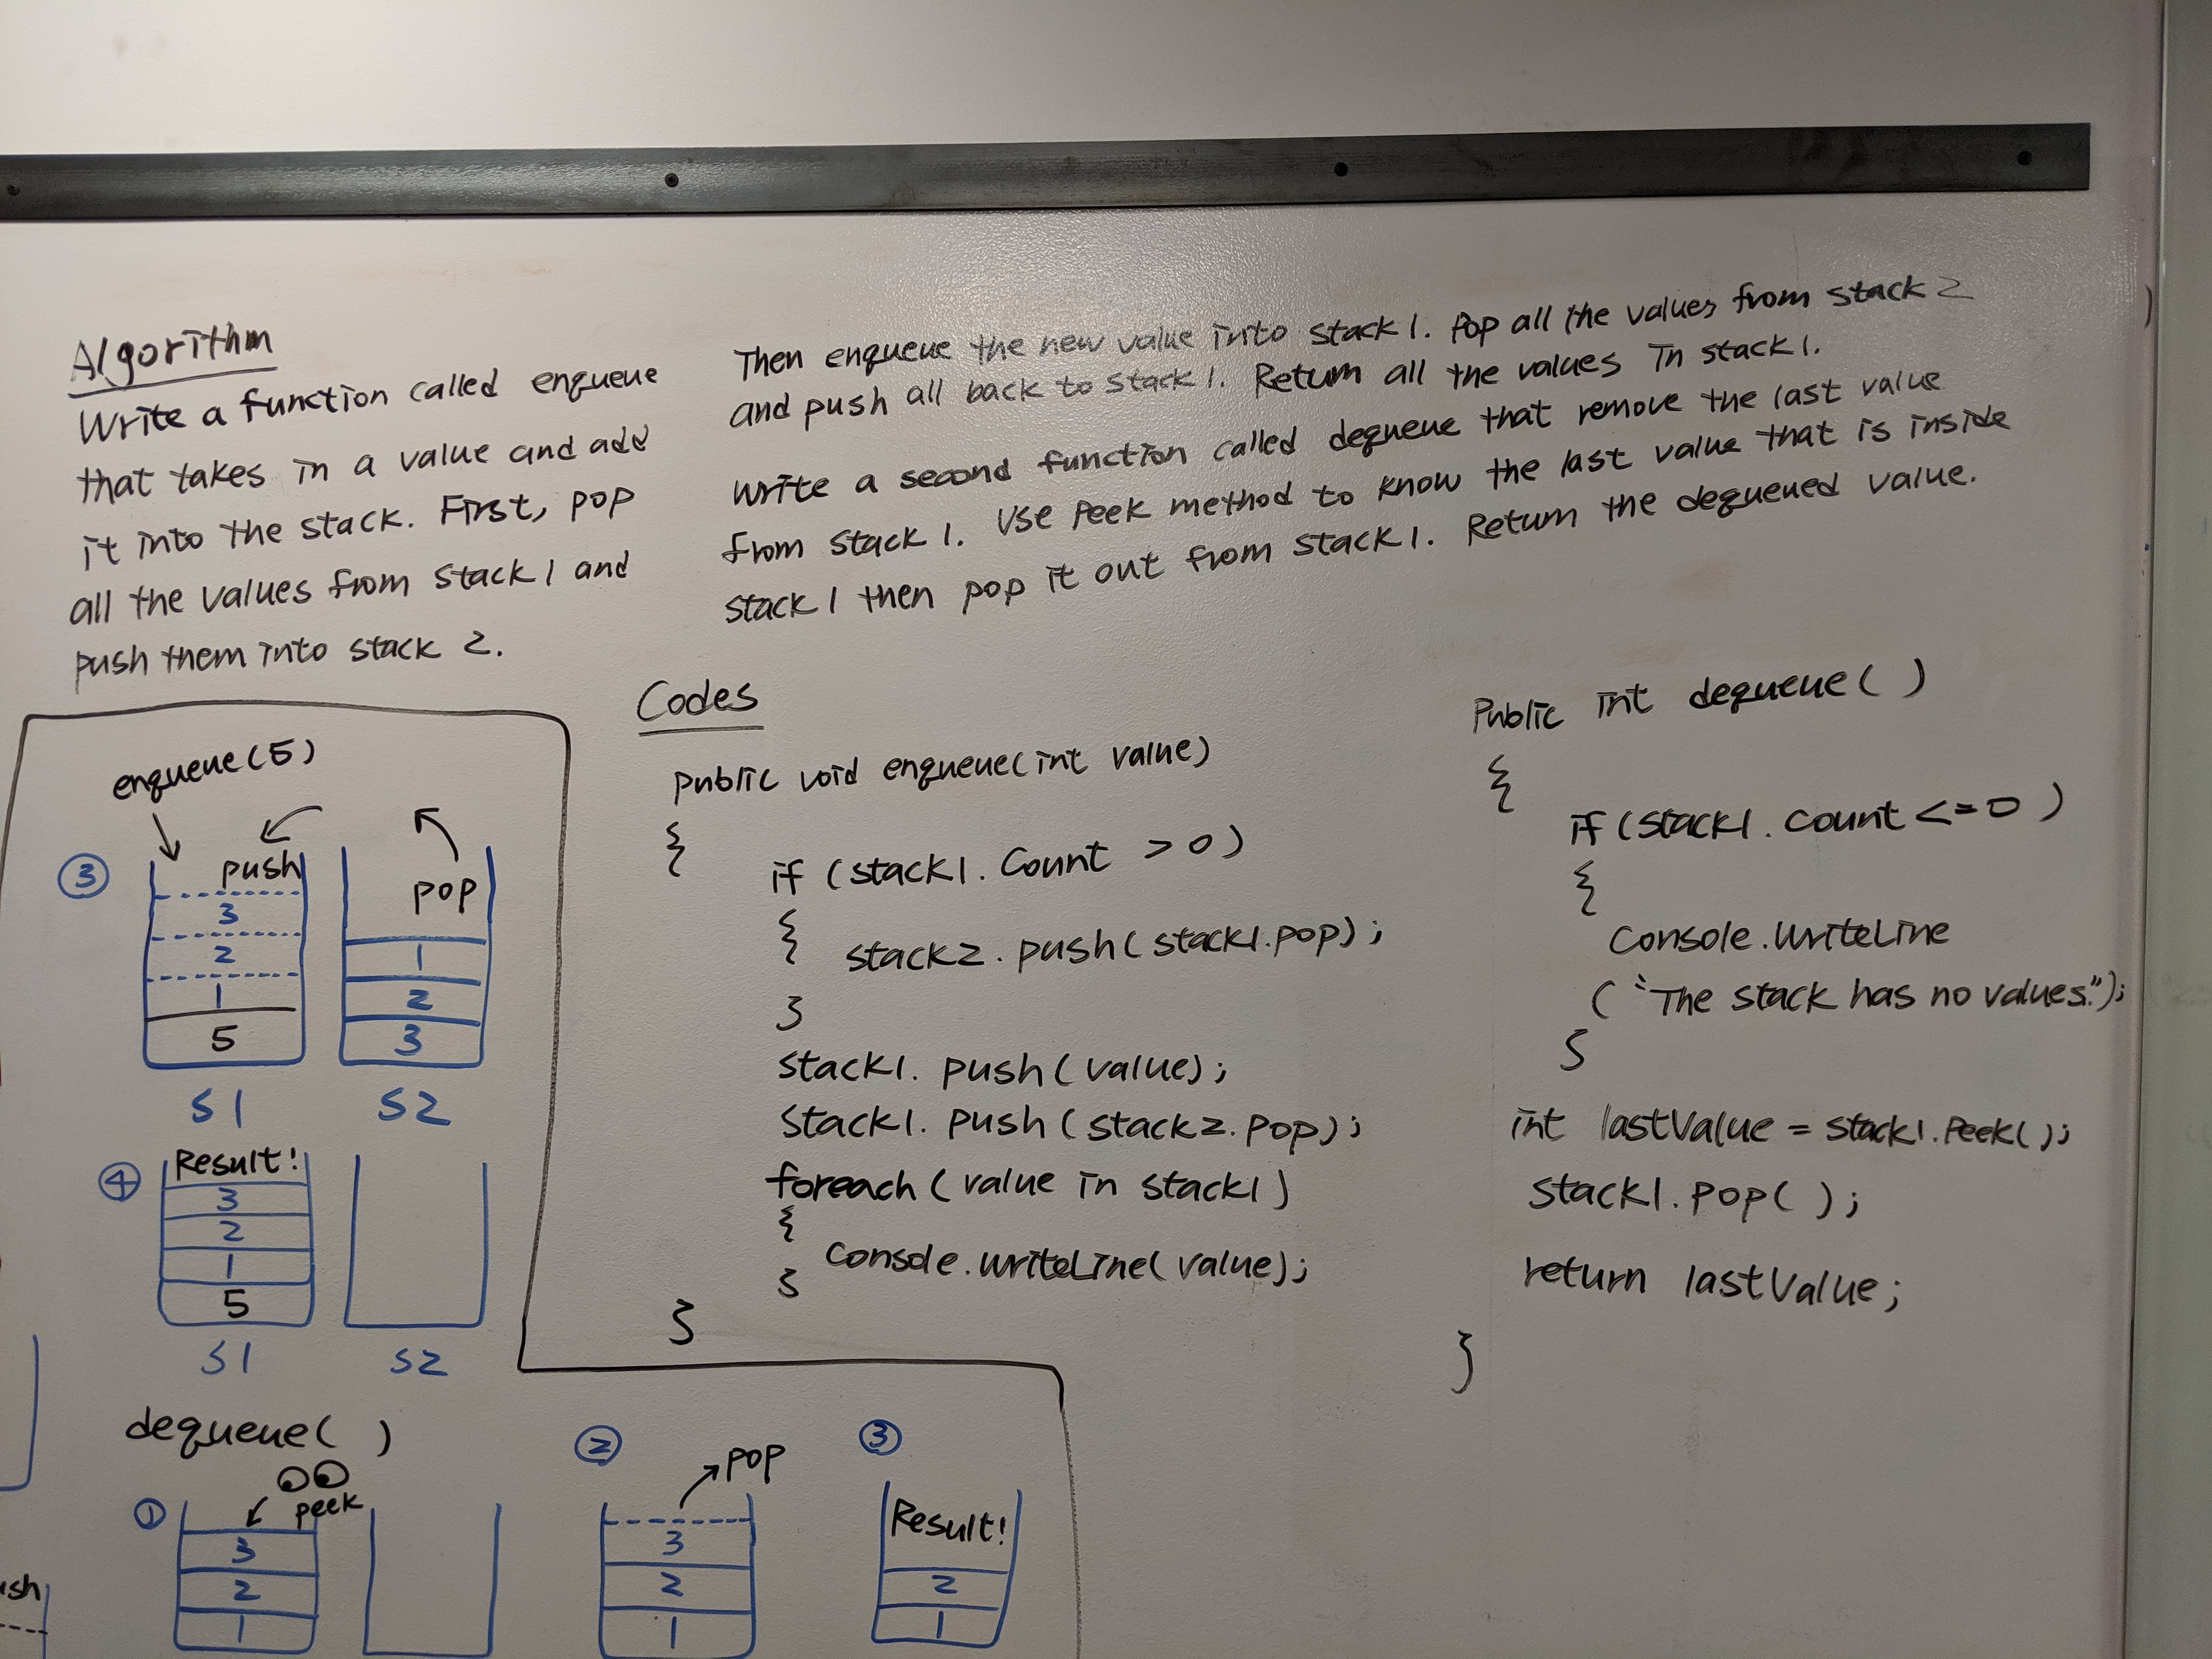 Algorithm
Write a function called enqueue
that takes in a value and add
it into the stack. First, pop
all the values from stack 1 and
push them into stack 2.
Then enqueue the new value into stack 1. Pop all the values from stack 2
and push all back to stack 1. Return all the values in stack 1.
Write a second function called dequeue that remove the last value
from stack 1. Use Peek method to know the last value that is inside
stack 1 then pop it out from stack 1. Return the dequeued value.
enqueue(5)
③
push
3
2
1
5
S1
pop
1
2
3
S2
④
Result!
3
2
1
5
S1
S2
Codes
public void enqueue(int value)
{
if (stack1.Count > 0)
{
stack2.push(stack1.pop);
}
stack1.push(value);
stack1.push(stack2.pop);
foreach(value in stack1)
{
Console.WriteLine(value);
}
}
Public int dequeue( )
{
if(stack1.count <=0 )
{
Console.WriteLine
( "The stack has no values.");
}
int lastValue = stack1.Peek();
stack1.pop( );
return lastValue;
}
dequeue( )
①
peek
3
2
1
②
pop
3
2
1
③
Result!
2
1